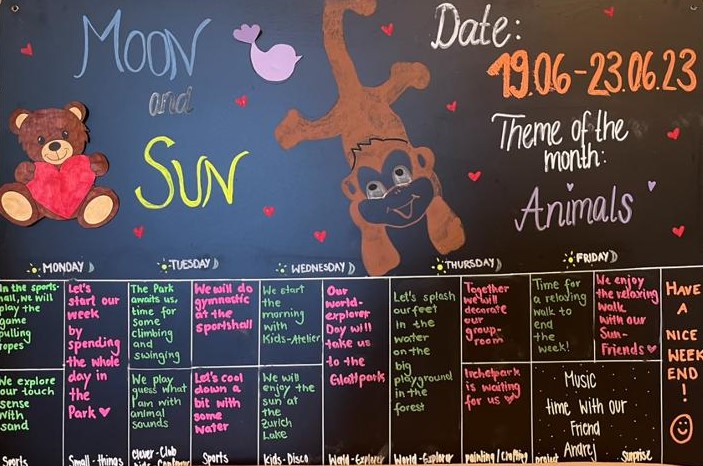 MOON
and
SUN
Date:
19.06-23.06.23
Theme of the
month:
Animals
MONDAY
TUESDAY
WEDNESDAY
THURSDAY
FRIDAY
In the sports-
hall, we will
play the
game
pulling
ropes
We explore
our touch
sense
with
sand
Sports
Let's
start our
week
by
spending
the whole
day in
the
Park
Small-things
The Park
awaits us,
time for
some
climbing
and
swinging
We play
guess what
I am with
animal
sounds
Clever-Club
We will do
gymnastic
at the
sportshall
Let's cool
down a
bit with
some
water
Sports
We start
the
morning
with
Kids-Atelier
We will
enjoy the
sun at
the
Zurich
Lake
Kids-Disco
Our
world-
explorer
Day will
take us
to the
Glattpark
World-Explorer
Let's splash
our feet
in the
water
on the
big
playground
in the
forest
World-Explorer
Together
we will
decorate
our
group-
room
Irchelpark
is waiting
for us
painting/crafting
Time for
a relaxing
walk to
end
the
week!
We enjoy
the relaxing
walk
with our
Sun-
Friends
Music
time with our
Friend
Andrej
project
Surprise
HAVE
A
NICE
WEEK
END
!